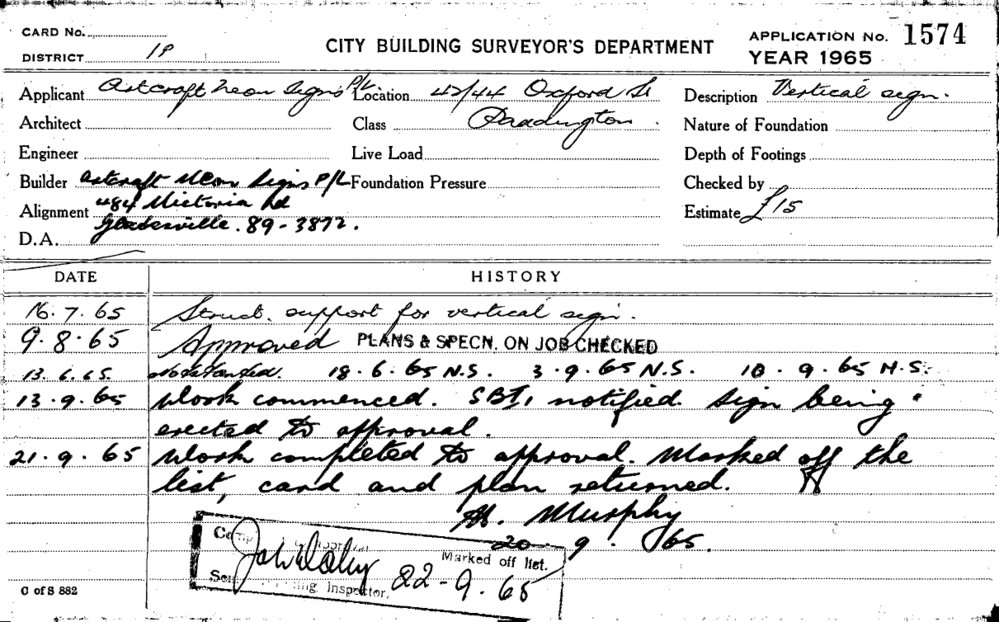 CARD No.
DISTRICT 1P
CITY BUILDING SURVEYOR'S DEPARTMENT
APPLICATION No. 1574
YEAR 1965
Applicant Artcraft Neon Signs P/L. Location 42/44 Oxford St Description Vertical sign.
Architect Class Paddington. Nature of Foundation
Engineer Live Load Depth of Footings
Builder Artcraft Neon Signs P/L Foundation Pressure Checked by
Alignment 484 Victoria Rd Estimate £15
D.A. Gladesville. 89-3872.
DATE HISTORY
16.7.65 Struct. support for vertical sign.
9.8.65 Approved PLANS & SPECN. ON JOB CHECKED
13.6.65 18.6.65 N.S. 3.9.65 N.S. 10.9.65 N.S.
13.9.65 Work commenced. notified. Sign being
erected to approval.
21.9.65 Work completed to approval. Marked off the
list, card and plan returned.
Murphy
20.9.65.
Marked off list.
Inspector. 22-9.65
C of S 882